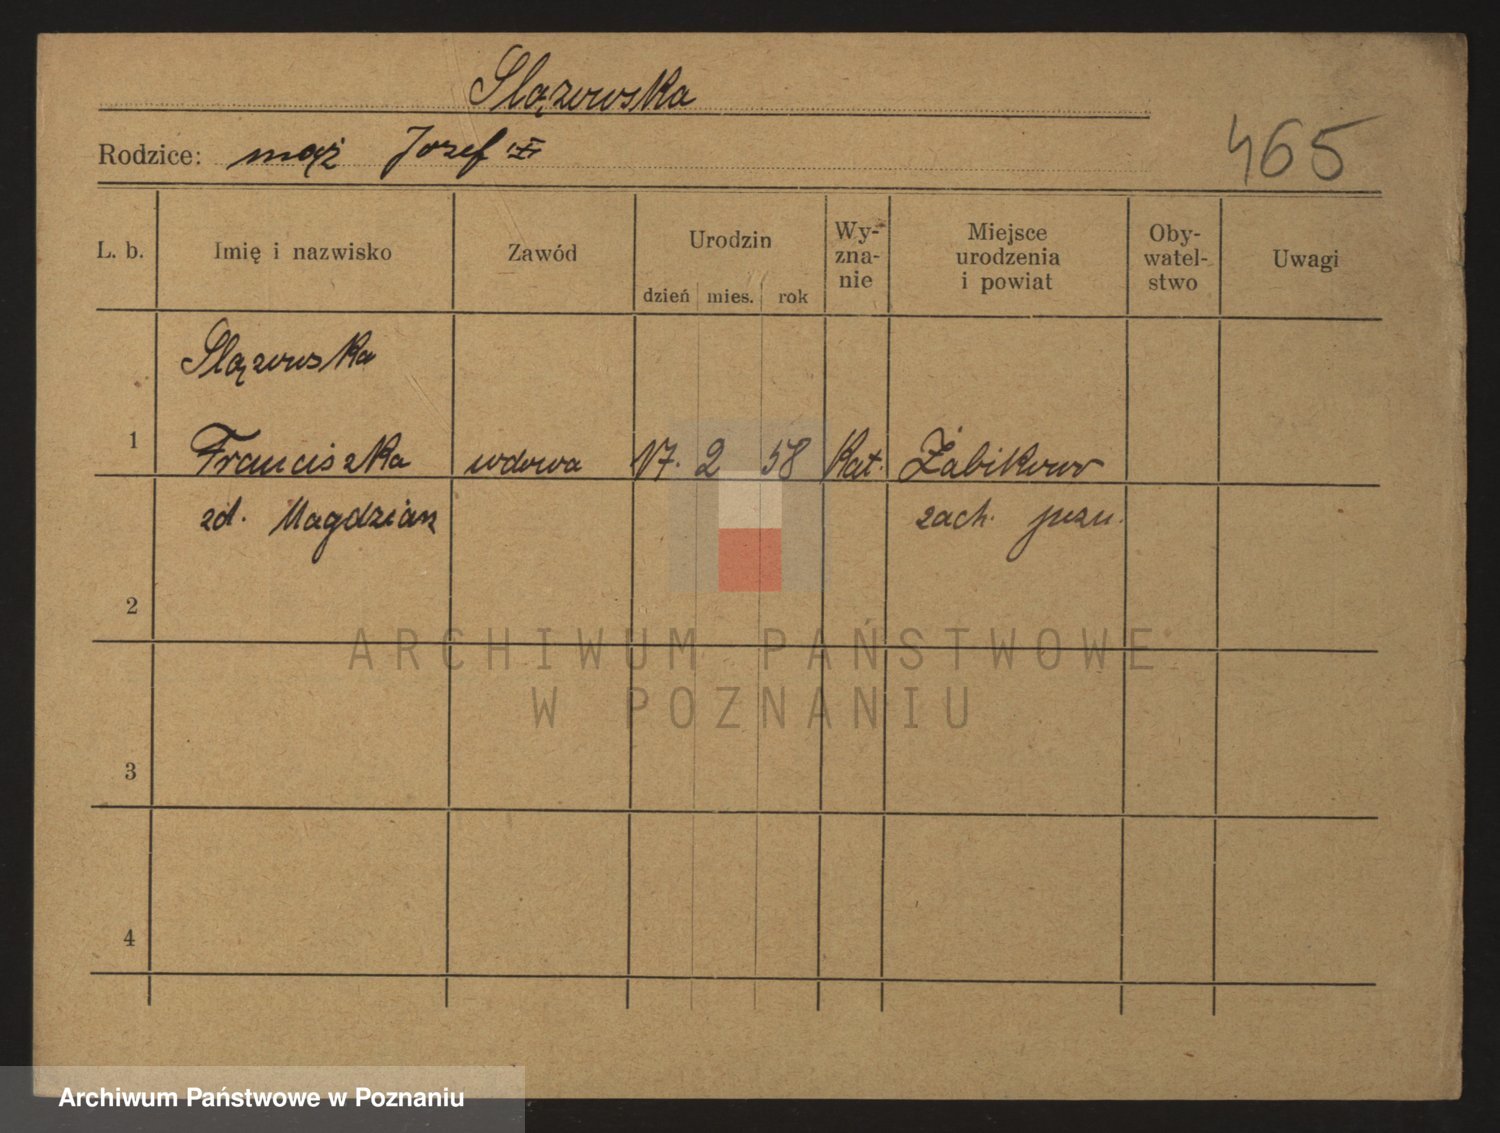 Slązowska
Rodzice: mąż Jozef
465
L. b. Imię i nazwisko Zawód Urodzin dzień mies. rok Wy-
zna-
nie Miejsce
urodzenia
i powiat Oby-
watel-
stwo Uwagi
Slązowska
1 Franciszka wdowa 17. 2 58 Kat. Żabikowo
zd. Magdziarz zach.
2
ARCHIWUM PAŃSTWOWE
W POZNANIU
3
4
Archiwum Państwowe w Poznaniu